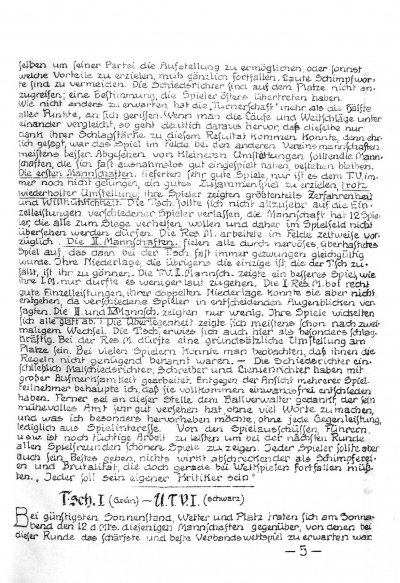 selben um seiner Partei die Aufstellung zu ermöglichen, oder sonst
welche Vorteile zu erzielen, muß gänzlich fortfallen. Laute Schimpfwor-
te sind zu vermeiden. Die Schiedsrichter sind auf dem Platze nicht an-
zugreifen; eine Bestimmung, die Spieler öfters übertreten haben.
Wie nicht anders zu erwarten, hat die "Turnerschaft" mehr als die Hälfte
aller Punkte, an sich gerissen. Wenn man die Läufe und Weitschläge unter-
einander vergleicht, so geht deutlich daraus hervor, daß dieselbe nur
dank ihrer Schlagstärke zu diesem Resultat kommen konnte, denn ehr-
lich gesagt, war das Spiel im Felde bei den anderen Vereinsmannschaften
meistens besser. Abgesehen von kleineren Umstellungen sollten alle Mann-
schaften, die sich fast ausnahmslos gut eingespielt haben, bestehen bleiben.
Die ersten Mannschaften. lieferten sehr gute Spiele, nur ist es dem T.V. im-
mer noch nicht gelungen, ein gutes Zusammenspiel zu erzielen, trotz
wiederholter Umstellung; ihre Spieler zeigten größtenteils Zerfahrenheit
und Willkürlichkeit. Die Tsch. sollte sich nicht allzusehr auf die Ein-
zelleistungen verschiedener Spieler verlassen, die Mannschaft hat 12 Spie-
ler, die alle zum Siege verhelfen, wollen und daher im Spielfeld nicht
übersehen werden dürfen. Die Res. M. arbeitete im Felde zeitweise vor-
züglich. Die II. Mannschaften. fielen alle durch nervöses, überhastetes
Spiel auf, das dann bei der Tsch. fast immer gezwungen gleichgültig
wurde. Ihre Niederlage die übrigens die einzige ist, die der Tsch zu-
fällt, ist ihr zu gönnen. Die T.V. II. Mannsch. zeigte ein besseres Spiel, wie
ihre I.M. nur dürfte es weniger laut zugehen. Die I Res. M. bot recht
gute Einzelleistungen, ihrer doppelten Niederlage konnte sie aber nicht
entgehen, da verschiedene Spieler in entscheidenden Augenblicken ver-
sagten. Die III. und IV. Mannsch. zeigten nur wenig. Ihre Spiele wickelten
sich alle glatt ab. Die Überlegenheit zeigte sich meistens schon nach zwei-
maligem Wechsel. Die Tsch. erwies sich auch hier als besonders schlag-
kräftig. Bei der Res. M. dürfte eine grundsätzliche Umstellung am
Platze sein. Bei vielen Spielern konnte man beobachten, daß ihnen die
Regeln nicht genügend bekannt waren. — Die Schiedsrichter ein-
schließlich Malschiedsrichter, Schreiber und Linienrichter haben mit
großer Aufmerksamkeit gearbeitet. Entgegen der Ansicht mehrerer Spiel-
teilnehmer behaupte ich, daß sie vollkommen einwandsfrei entschieden
haben. Ferner sei an dieser Stelle dem Ballverwalter gedankt der sein
mühevolles Amt sehr gut versehen hat ohne viel Worte zu machen,
und was ich besonders hervorheben möchte, ohne jede Gegenleistung,
lediglich aus Spielinteresse. Von den Spielausschüssen, Führern
u.s.w. ist noch tüchtige Arbeit zu leisten um bei der nächsten Runde
allen Spielfreunden schönere Spiele zu zeigen. Jeder Spieler sollte aber
auch sein Bestes geben, nichts wirkt abschreckender als Schimpferei-
en und Brutalität, die doch gerade bei Wettspielen fortfallen müß-
ten. „Jeder soll sein eigener Kritiker sein"
Tsch. I (Grün) — U.T.V. I. (schwarz)
Bei günstigstem Sonnenstand, Wetter und Platz traten sich am Sonna-
bend den 12 d. Mts. diejenigen Mannschaften gegenüber, von denen bei
dieser Runde das schärfste und beste Verbandswettspiel zu erwarten war.
— 5 —